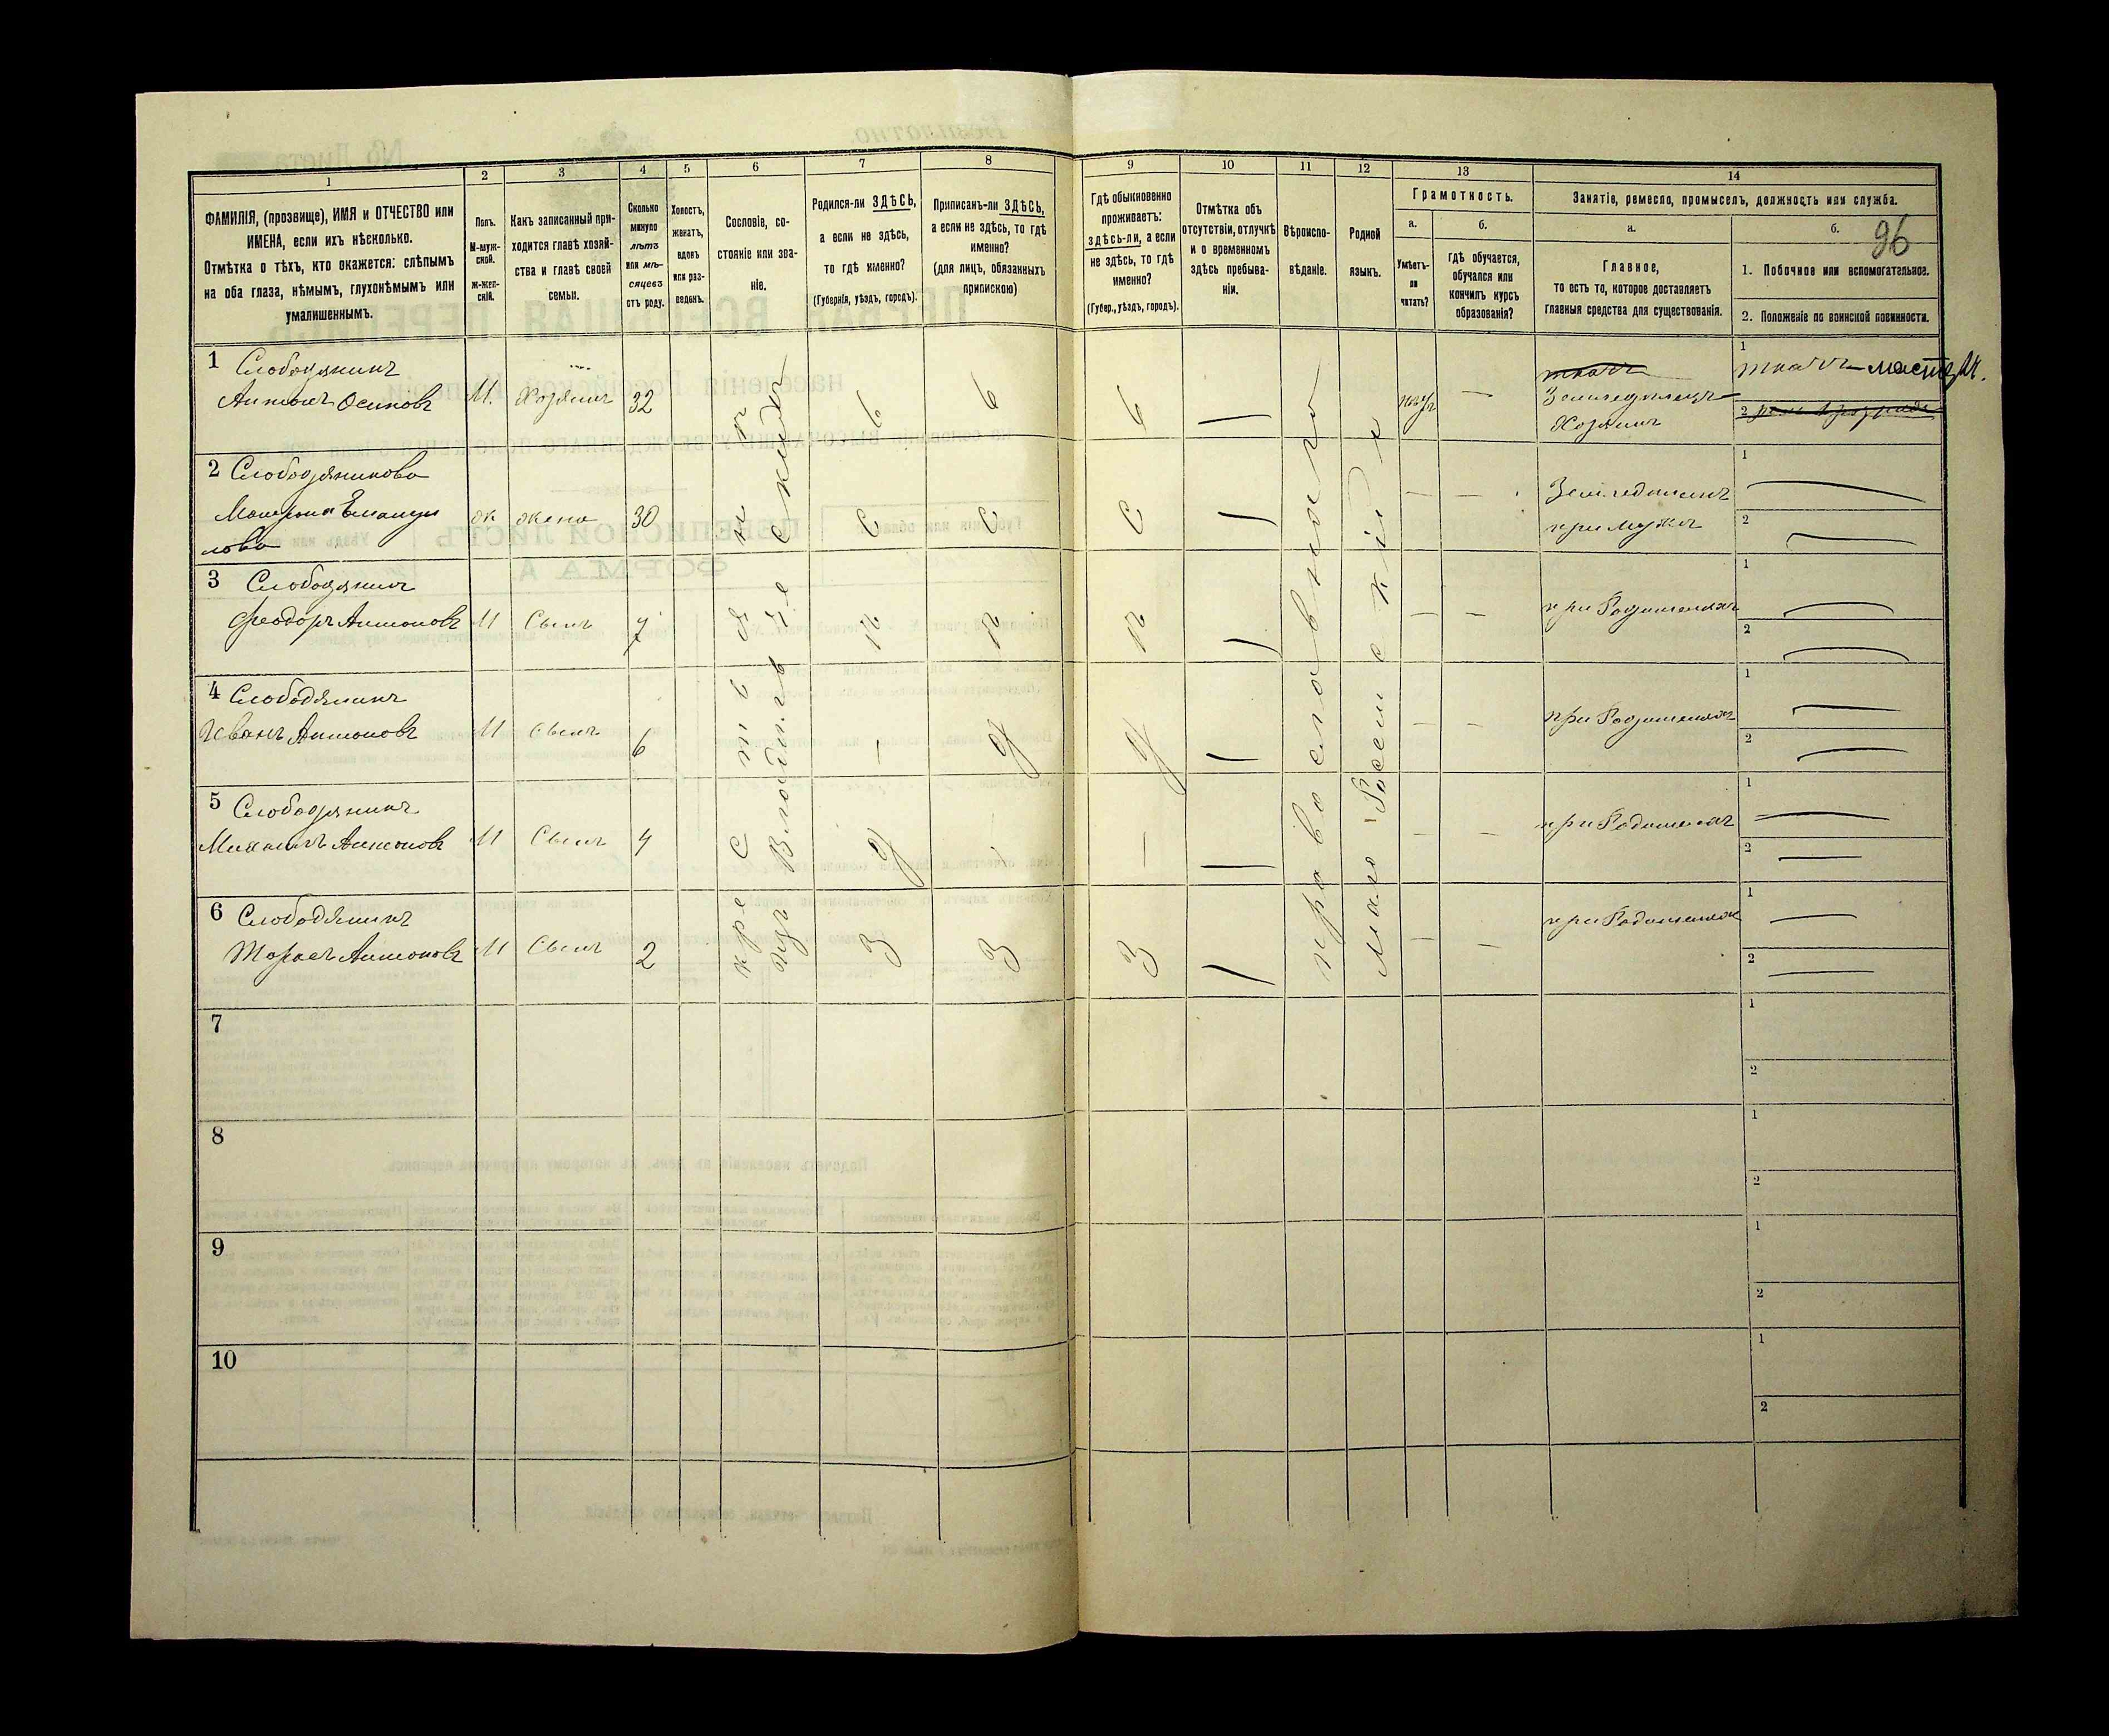 1
ФАМИЛІЯ, (прозвище), ИМЯ и ОТЧЕСТВО или
ИМЕНА, если ихъ нѣсколько.
Отмѣтка о тѣхъ, кто окажется: слѣпымъ
на оба глаза, нѣмымъ, глухонѣмымъ или
умалишеннымъ.
2
Полъ.
М-муж-
ской.
Ж-жен-
скій.
3
Какъ записанный при-
ходится главѣ хозяй-
ства и главѣ своей
семьи.
4
Сколько
минуло
лѣтъ
или мѣ-
сяцевъ
отъ роду.
5
Холостъ,
женатъ,
вдовъ
или раз-
веденъ.
6
Сословіе, со-
стояніе или зва-
ніе.
7
Родился-ли ЗДѢСЬ,
а если не здѣсь,
то гдѣ именно?
(Губернія, уѣздъ, городъ).
8
Приписанъ-ли ЗДѢСЬ,
а если не здѣсь, то гдѣ
именно?
(для лицъ, обязанныхъ
припискою)
9
Гдѣ обыкновенно
проживаетъ:
ЗДѢСЬ-ЛИ, а если
не здѣсь, то гдѣ
именно?
(Губер., уѣздъ, городъ).
10
Отмѣтка объ
отсутствіи, отлучкѣ
и о временномъ
здѣсь пребыва-
ніи.
11
Вѣроиспо-
вѣданіе.
12
Родной
языкъ.
13
Грамотность.
а.
Умѣетъ-
ли
читать?
б.
гдѣ обучается,
обучался или
кончилъ курсъ
образованія?
14
Занятіе, ремесло, промыселъ, должность или служба.
а.
Главное,
то есть то, которое доставляетъ
главныя средства для существованія.
б.
96
1. Побочное или вспомогательное.
2. Положеніе по воинской повинности.
1 Слободянинъ
Антонъ Осиповъ
М.
Хозяинъ
32
ткачъ
Земледѣлецъ
Хозяинъ
1
ткачъ мастеръ.
2
2 Слободянинова
ж
жена
30
Земледѣлецъ
при мужѣ
1
2
3 Слободянинъ
Феодоръ Антоновъ
М
Сынъ
7
при Родителяхъ
1
2
4 Слободянинъ
Иванъ Антоновъ
М
Сынъ
6
при Родителяхъ
1
2
5 Слободянинъ
Михаилъ Антоновъ
М
Сынъ
4
при Родителяхъ
1
2
6 Слободянинъ
Тарасъ Антоновъ
М
Сынъ
2
при Родителяхъ
1
2
крестьянинъ
изъ
Здѣсь
Здѣсь
Здѣсь
православного
Мало Россійскій
7
1
2
8
1
2
9
1
2
10
1
2